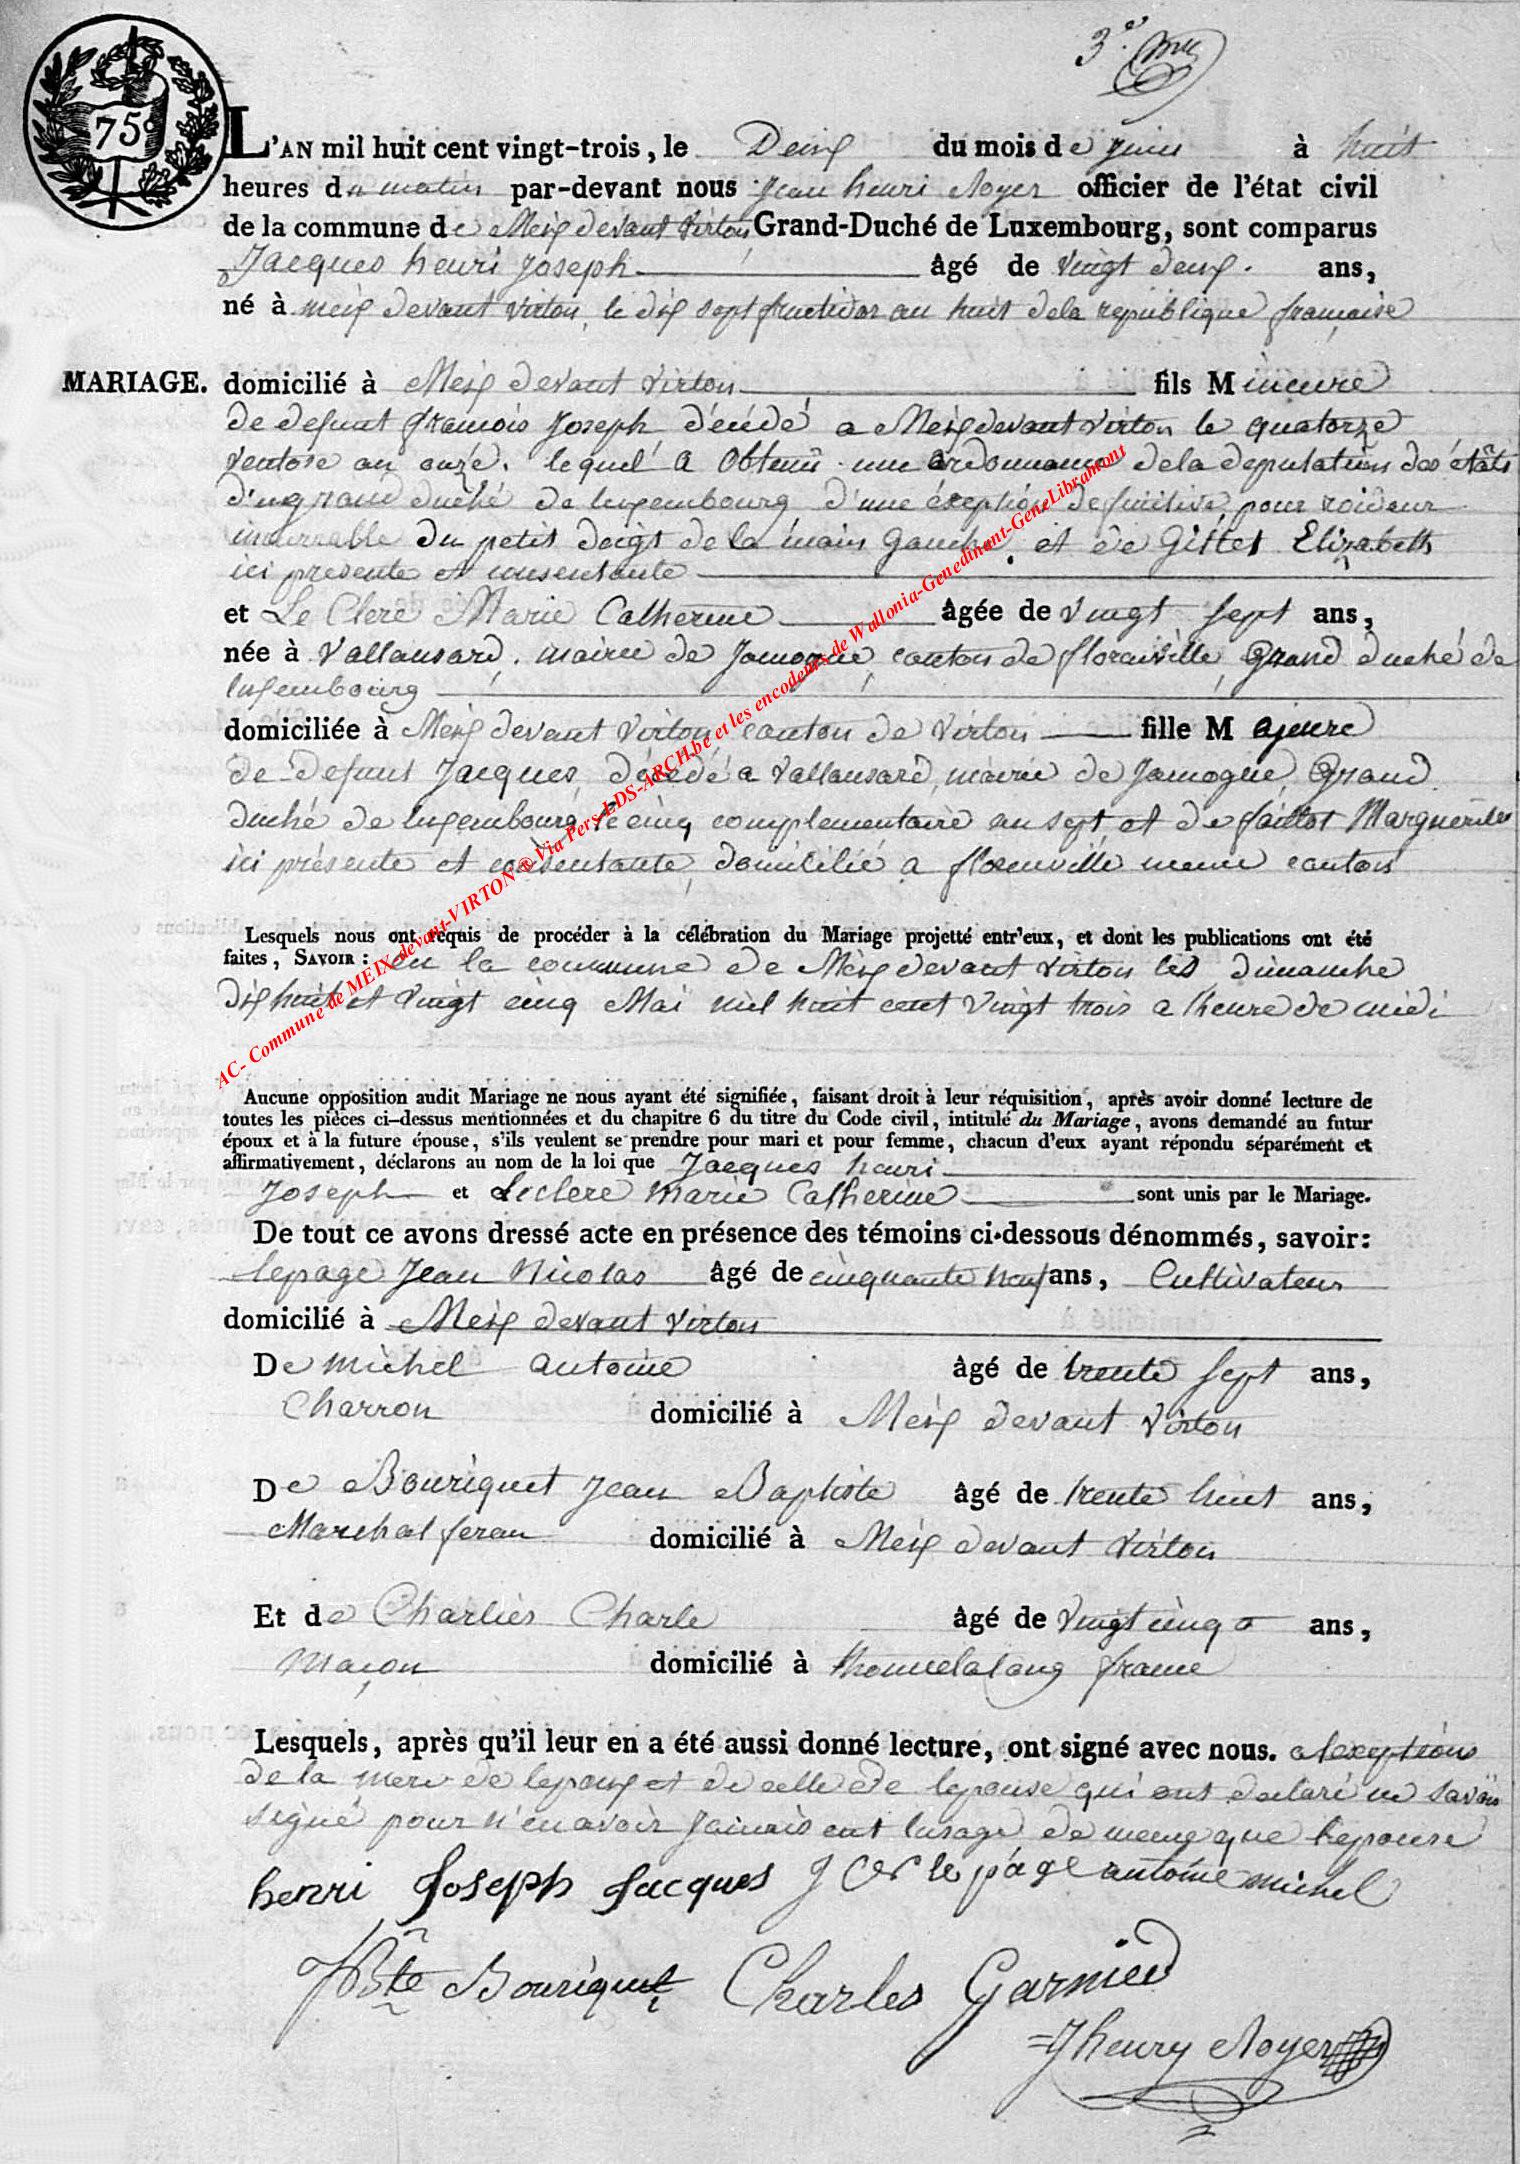 3.e
75c
L'AN mil huit cent vingt-trois, le Deux du mois de juin à huit
heures du matin par-devant nous Jean henri Noyer officier de l'état civil
de la commune de Meix devant Virton Grand-Duché de Luxembourg, sont comparus
Jacques henri Joseph âgé de vingt deux. ans,
né à meix devant virton, le dix sept fructidor an huit dela republique française
MARIAGE. domicilié à Meix devant virton fils Mineure
de defunt françois Joseph décédé a Meix devant virton le quatorze
ventose an onze. lequel a obtenu une ordonnance dela deputation des états
du grand duché de luxembourg d'une éxeption definitive pour roideur
incurrable du petit doigt de la main gauche, et de Gillet Elizabeth
ici presente et consentante
et Le Clere Marie Catherine âgée de vingt sept ans,
née à Vallansard, mairie de Jamogne, canton de florenville, Grand duché de
luxembourg
domiciliée à Meix devant virton, canton de virton fille Majeure
de defunt Jacques, décédé a vallansard, mairie de Jamogne, Grand
duché de luxembourg, le cinq complementaire an sept et de faillot Marguerite
ici présente et consentante, domicilié a florenville meme canton
Lesquels nous ont requis de procéder à la célébration du Mariage projetté entr'eux, et dont les publications ont été
faites, SAVOIR : en la commune de Meix devant virton les dimanche
dix huit et vingt cinq Mai mil huit cent vingt trois a lheure de midi
Aucune opposition audit Mariage ne nous ayant été signifiée, faisant droit à leur réquisition, après avoir donné lecture de
toutes les pièces ci-dessus mentionnées et du chapitre 6 du titre du Code civil, intitulé du Mariage, avons demandé au futur
époux et à la future épouse, s'ils veulent se prendre pour mari et pour femme, chacun d'eux ayant répondu séparément et
affirmativement, déclarons au nom de la loi que Jacques henri
Joseph et Leclere marie Catherine sont unis par le Mariage.
De tout ce avons dressé acte en présence des témoins ci-dessous dénommés, savoir :
lepage Jean Nicolas âgé de cinquante neuf ans, Cultivateur
domicilié à Meix devant virton
De michel antoine âgé de trente sept ans,
Charron domicilié à Meix devant virton
De Bouriquet Jean Baptiste âgé de trente huit ans,
Marchal feran domicilié à Meix devant virton
Et de Charlies Charle âgé de vingt cinq ans,
maçon domicilié à thonnelalong france
Lesquels, après qu'il leur en a été aussi donné lecture, ont signé avec nous. a lexeptions
de la mere de lepoux et de celle de lepouse qui ont declaré ne savoir
signé pour n'en avoir jamais eut lusage de meme que lepouse
henri Joseph Jacques J le page antoine michel
JBte Bouriquet Charles Garnied
Jhenry Noyer
AC- Commune de MEIX-devant-VIRTON ® Via Pers-LDS-ARCH.be et les encodeurs de Wallonia-Genedinant-GeneLibramont